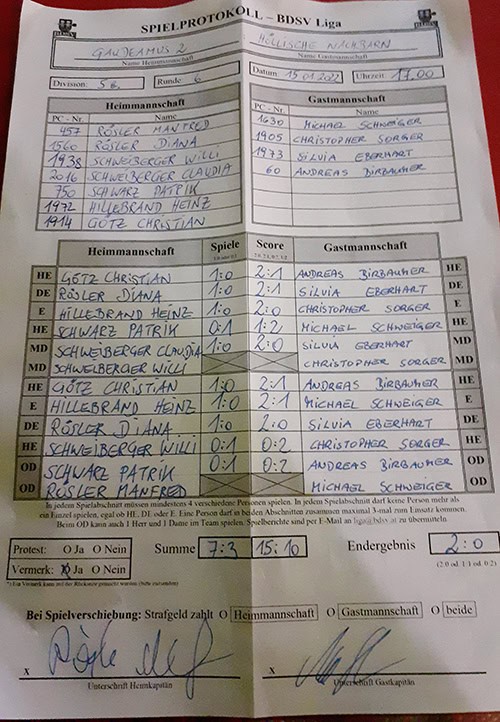 SPIELPROTOKOLL – BDSV Liga
GAUDEAMUS 2 HÖLLISCHE NACHBARN
Name Heimmannschaft Name Gastmannschaft
Division: 5 Runde: 6 Datum: 15.01.202 Uhrzeit: 17.00
Heimmannschaft Gastmannschaft
PC - Nr. Name PC - Nr. Name
457 RÖSLER MANFRED 1630 MICHAEL SCHWEIGER
1560 RÖSLER DIANA 1905 CHRISTOPHER SORGER
1938 SCHWEIBERGER WILLI 1973 SILVIA EBERHART
2016 SCHWEIBERGER CLAUDIA 60 ANDREAS BIRBAUMER
750 SCHWARZ PATRIK
1972 HILLEBRAND HEINZ
1914 GÖTZ CHRISTIAN
Heimmannschaft Spiele Score Gastmannschaft
HE GÖTZ CHRISTIAN 1:0 2:1 ANDREAS BIRBAUMER HE
DE RÖSLER DIANA 1:0 2:1 SILVIA EBERHART DE
E HILLEBRAND HEINZ 1:0 2:0 CHRISTOPHER SORGER E
HE SCHWARZ PATRIK 0:1 1:2 MICHAEL SCHWEIGER HE
MD SCHWEIBERGER CLAUDIA 1:0 2:0 SILVIA EBERHART MD
MD SCHWEIBERGER WILLI CHRISTOPHER SORGER MD
HE GÖTZ CHRISTIAN 1:0 2:1 ANDREAS BIRBAUMER HE
E HILLEBRAND HEINZ 1:0 2:1 MICHAEL SCHWEIGER E
DE RÖSLER DIANA 1:0 2:0 SILVIA EBERHART DE
HE SCHWEIBERGER WILLI 0:1 0:2 CHRISTOPHER SORGER HE
OD SCHWARZ PATRIK 0:1 0:2 ANDREAS BIRBAUMER OD
OD RÖSLER MANFRED MICHAEL SCHWEIGER OD
In jedem Spielabschnitt müssen mindestens 4 verschiedene Personen spielen. In jedem Spielabschnitt darf keine Person mehr als
ein Einzel spielen, egal ob HE, DE oder E. Eine Person darf in beiden Abschnitten zusammen maximal 3-mal zum Einsatz kommen.
Beim OD kann auch 1 Herr und 1 Dame im Team spielen. Spielberichte sind per E-Mail an liga@bdsv.at zu übermitteln.
Protest: O Ja O Nein Summe 7:3 15:10 Endergebnis 2:0
Vermerk: O Ja O Nein (2:0 od. 1:1 od. 0:2)
Bei Spielverschiebung: Strafgeld zahlt O Heimmannschaft O Gastmannschaft O beide
x x
Unterschrift Heimkapitän Unterschrift Gastkapitän